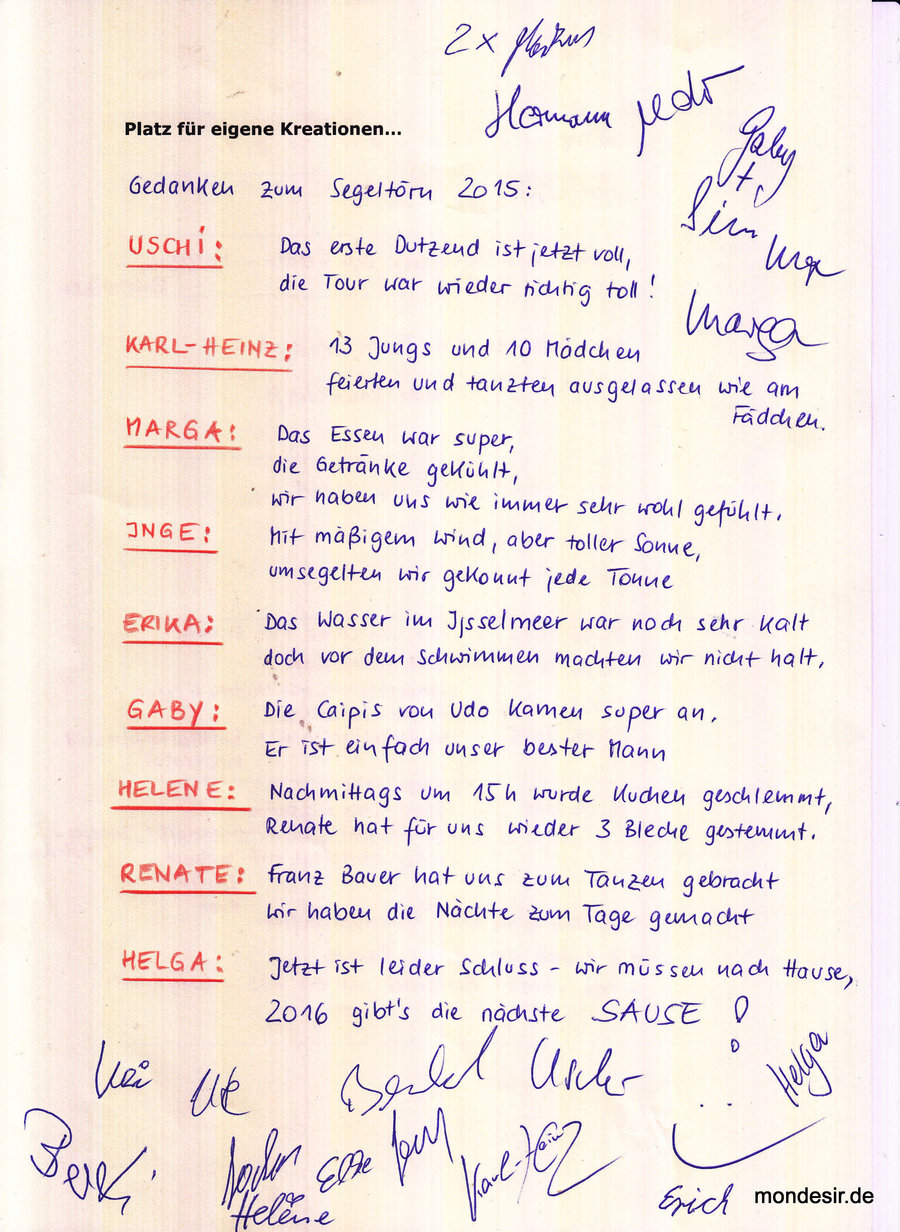 2x Markus
Hermann Udo
Platz für eigene Kreationen...
Gaby
+
Gedanken zum Segeltörn 2015:
USCHI: Das erste Dutzend ist jetzt voll,
die Tour war wieder richtig toll!
Marga
KARL-HEINZ: 13 Jungs und 10 Mädchen
feierten und tanzten ausgelassen wie am
Fädchen.
MARGA: Das Essen war super,
die Getränke gekühlt,
wir haben uns wie immer sehr wohl gefühlt.
INGE: Mit mäßigem Wind, aber toller Sonne,
umsegelten wir gekonnt jede Tonne
ERIKA: Das Wasser im Ijsselmeer war noch sehr kalt
doch vor dem Schwimmen machten wir nicht halt.
GABY: Die Caipis von Udo kamen super an.
Er ist einfach unser bester Mann
HELENE: Nachmittags um 15h wurde Kuchen geschlemmt,
Renate hat für uns wieder 3 Bleche gestemmt.
RENATE: Franz Bauer hat uns zum Tanzen gebracht
wir haben die Nächte zum Tage gemacht
HELGA: Jetzt ist leider Schluss - wir müssen nach Hause,
2016 gibt's die nächste SAUSE!
Kai Ute Uschi Helga
Elke Karl-Heinz
Helene Erich
mondesir.de